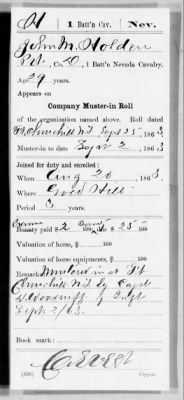 H | 1 Batt'n Cav. | Nev.
John M. Holden
Pvt., Co. D, 1 Battalion Nevada Cavalry.
Age 29 years.
Appears on
Company Muster-in Roll
of the organization named above. Roll dated
Ft Churchill N.T. Sept 25, 1863
Muster-in to date Sept 2, 1863
Joined for duty and enrolled:
When Aug 20, 1863
Where Gold Hill
Period 3 years.
Bounty paid $ 2 100; due $ 25 100
Valuation of horse, $ 100
Valuation of horse equipments, $ 100
Remarks: Mustered in at Ft
Churchill N.T. by Capt
Sept 2/63.
Book mark:
(356) Copyist.